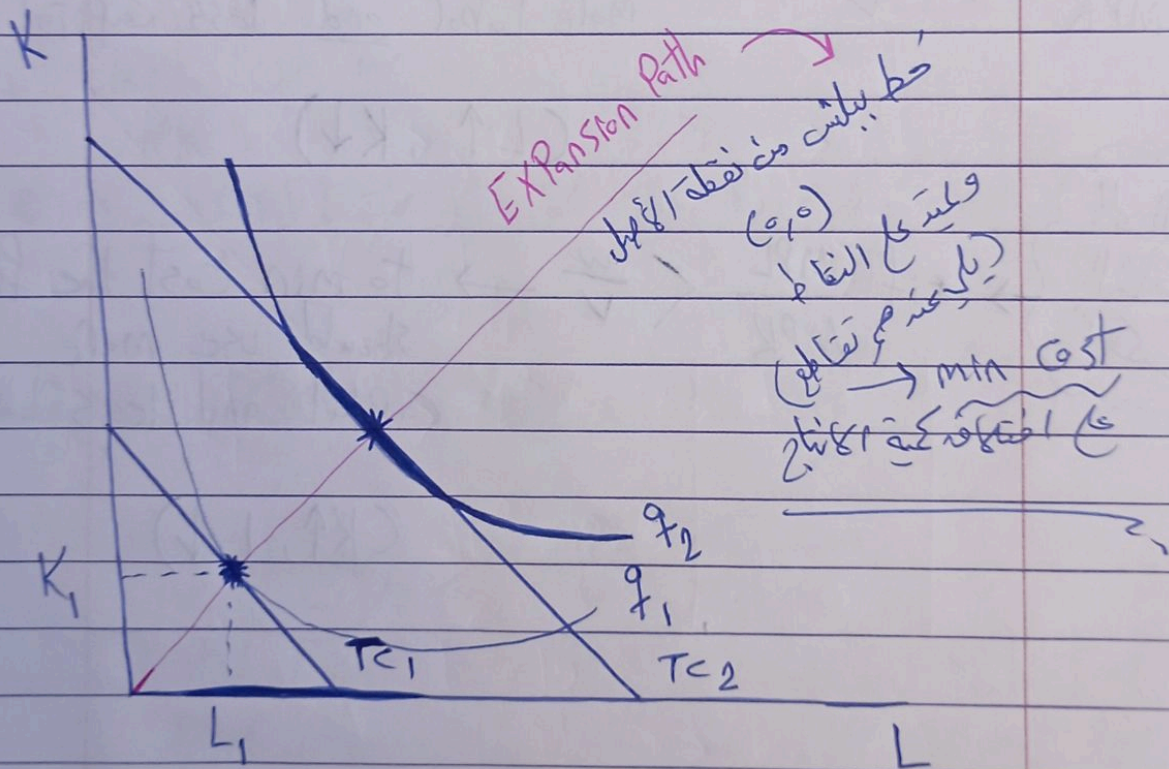 K
EXPansion Path
خط يبلش من نقطة الأصل
(0,0)
ويمتد ع النقاط
(يلي عندهم تقاطع)
→ min Cost
ع اختلاف كمية الانتاج
q2
q1
K1
TC1
TC2
L1
L